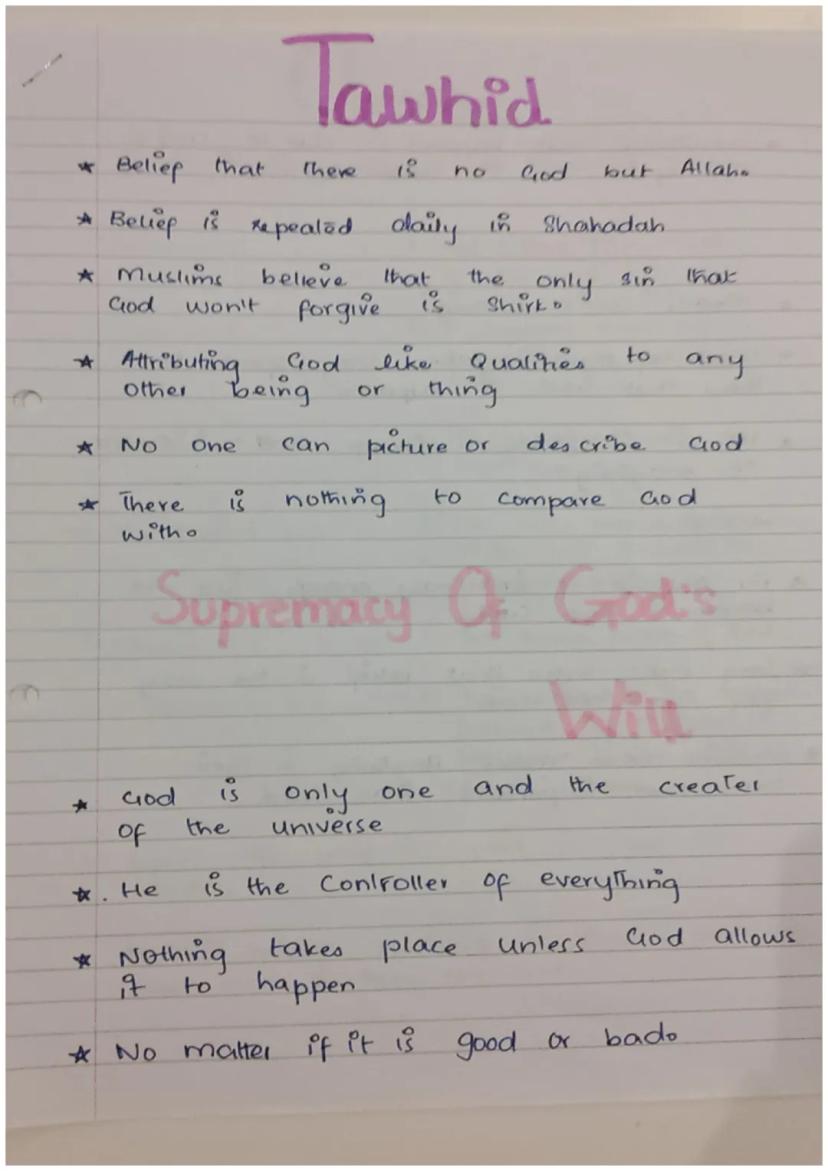 Tawhid
* Belief that there is no God but Allah.
* Belief is repeated daily in Shahadah
* Muslims believe that the only sin that
God won't forgive is Shirk.
* Attributing God like Qualities to any
other being or thing
* No one can picture or describe God
* There is nothing to compare God
with.
Supremacy Of God's
Will
* God is only one and the creater
of the universe
* . He is the Controller of everything
* Nothing takes place unless God allows
it to happen
* No matter if it is good or bad.